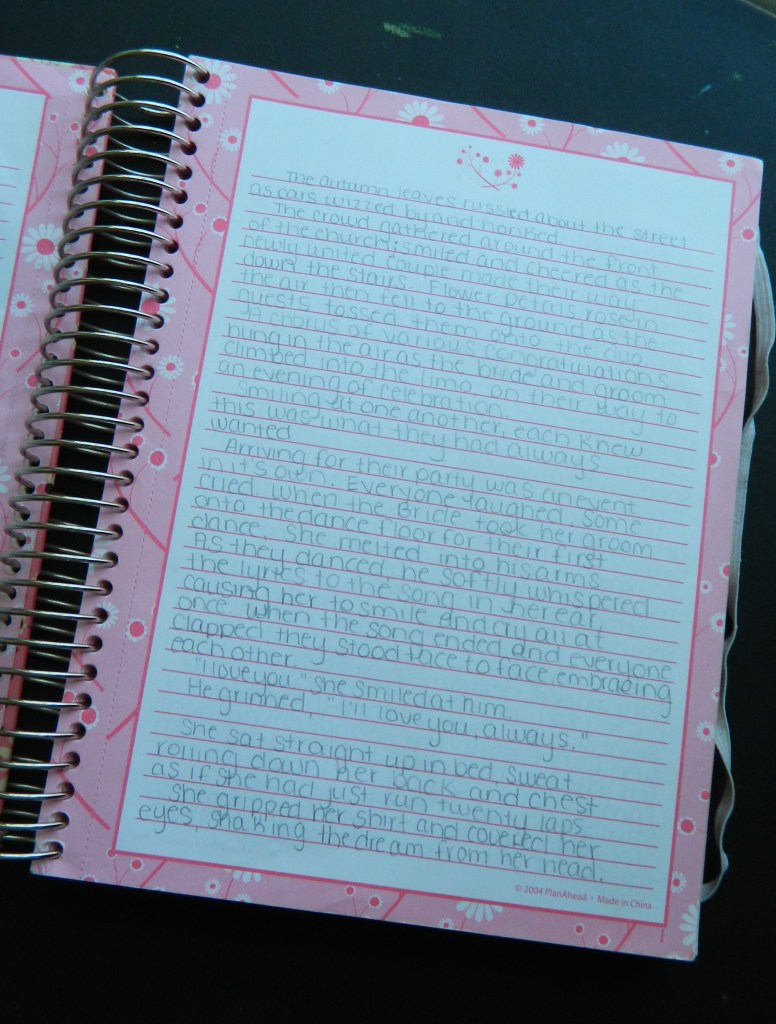 The autumn leaves russled about the street
as cars wizzed by and honked.
The crowd gathered around the front
of the church; smiled and cheered as the
newly united couple made their way
down the stairs. Flower petals rose in
the air then fell to the ground as the
guests tossed them onto the duo.
A chorus of various congratulations
hung in the air as the bride and groom
climbed into the limo on their way to
an evening of celebration.
Smiling at one another, each knew
this was what they had always
wanted
Arriving for their party was an event
in it's own. Everyone laughed, some
cried when the Bride took her groom
onto the dance floor for their first
dance. She melted into his arms
As they danced, he softly whispered
the lyrics to the song in her ear,
causing her to smile and cry all at
once. When the song ended and everyone
clapped they stood face to face, embracing
each other.
"I love you." she smiled at him.
He grinned, "I'll love you, always."
She sat straight up in bed, sweat
rolling down her back and chest
as if she had just run twenty laps
She gripped her shirt and covered her
eyes, shaking the dream from her head.
© 2004 PlanAhead • Made in China